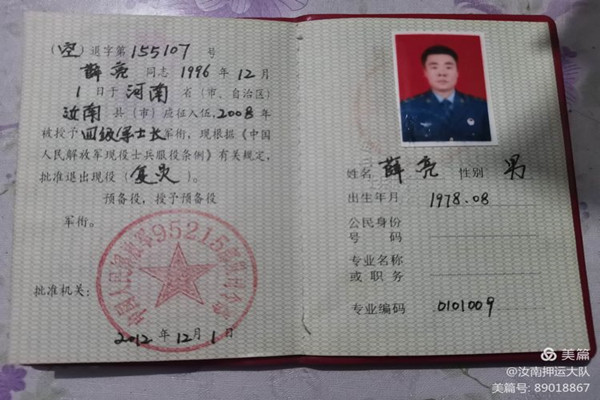 （空）通字第155107号
薛亮同志1996年12月
1日于河南省（市、自治区）
汝南县（市）应征入伍，2008年
被授予四级军士长军衔，现根据《中国
人民解放军现役士兵服役条例》有关规定，
批准退出现役（复员）。
预备役，授予预备役
军衔。
批准机关：
中国人民解放军95215部队司令部
2012年12月1日
姓名 薛亮 性别 男
出生年月 1978.08
公民身份
号码
专业名称
或职务
专业编码 0101009
美篇
@汝南押运大队
美篇号: 89018867